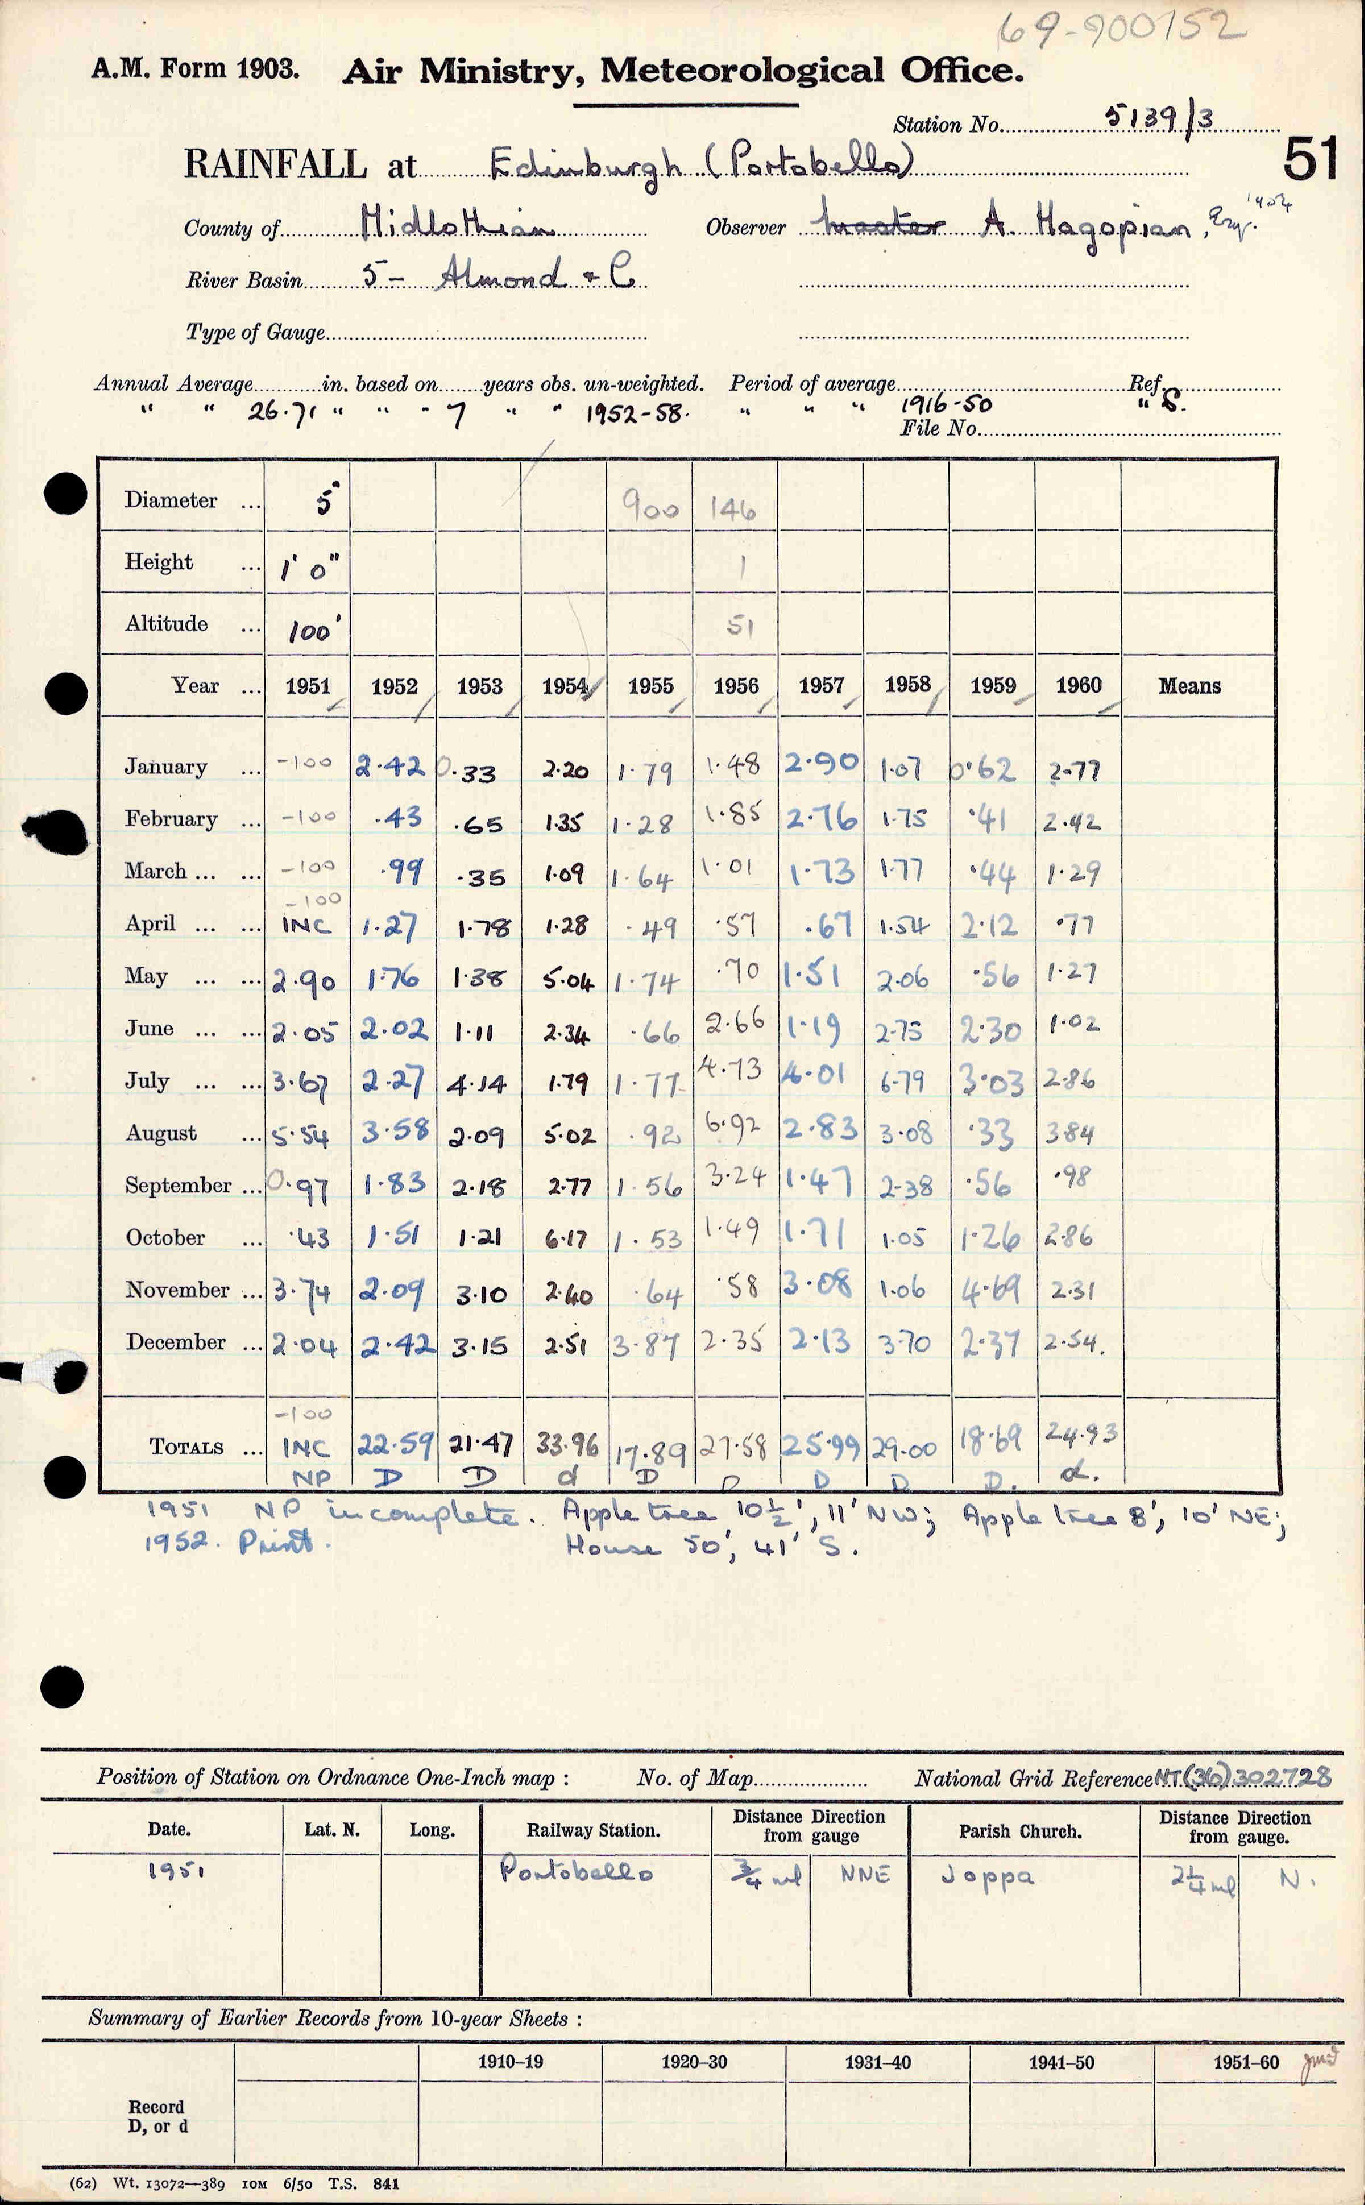 69-900152
A.M. Form 1903. Air Ministry, Meteorological Office.
Station No. 5139/3
51
RAINFALL at Edinburgh (Portobello)
County of Midlothian Observer A. Hagopian, Esq.
River Basin 5- Almond & C
Type of Gauge
Annual Average in. based on years obs. un-weighted. Period of average Ref.
" " 26.71 " " " 7 " " 1952-58. " " " 1916-50 " S.
File No.
Diameter ... 5" 900 146
Height ... 1' 0" 1
Altitude ... 100' 51
Year ... 1951 1952 1953 1954 1955 1956 1957 1958 1959 1960 Means
January ... -100 2.42 0.33 2.20 1.79 1.48 2.90 1.07 0.62 2.77
February ... -100 .43 .65 1.35 1.28 1.85 2.76 1.75 .41 2.42
March ... ... -100 .99 .35 1.09 1.64 1.01 1.73 1.77 .44 1.29
-100
April ... ... INC 1.27 1.78 1.28 .49 .57 .67 1.54 2.12 .77
May ... ... 2.90 1.76 1.38 5.04 1.74 .70 1.51 2.06 .56 1.27
June ... ... 2.05 2.02 1.11 2.34 .66 2.66 1.19 2.75 2.30 1.02
July ... ... 3.67 2.27 4.14 1.79 1.77 4.73 4.01 6.79 3.03 2.86
August ... 5.54 3.58 2.09 5.02 .92 6.92 2.83 3.08 .33 3.84
September ... 0.97 1.83 2.18 2.77 1.56 3.24 1.47 2.38 .56 .98
October ... .43 1.51 1.21 6.17 1.53 1.49 1.71 1.05 1.26 2.86
November ... 3.74 2.09 3.10 2.40 .64 .58 3.08 1.06 4.69 2.31
December ... 2.04 2.42 3.15 2.51 3.87 2.35 2.13 3.70 2.37 2.54.
-100
TOTALS ... INC 22.59 21.47 33.96 17.89 27.58 25.99 29.00 18.69 24.93
NP D D d D D D D D. d.
1951 NP incomplete. Apple tree 10½', 11' NW; Apple tree 8', 10' NE;
1952. Print. House 50', 41' S.
Position of Station on Ordnance One-Inch map : No. of Map National Grid Reference NT(36)302728
Date. Lat. N. Long. Railway Station. Distance Direction from gauge Parish Church. Distance Direction from gauge.
1951 Portobello ¾ ml NNE Joppa 2¼ ml N.
Summary of Earlier Records from 10-year Sheets :
1910–19 1920–30 1931–40 1941–50 1951–60
Record
D, or d
(62) Wt. 13072—389 10M 6/50 T.S. 841